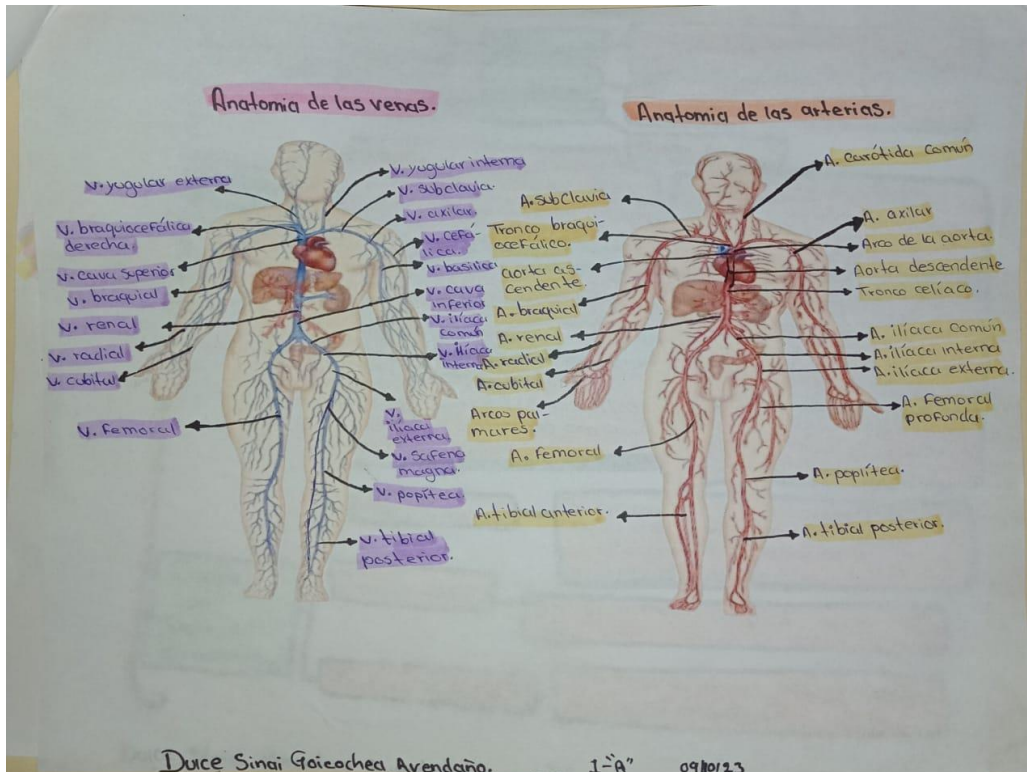 Anatomia de las venas.
V. yugular externa
V. braquiocefálica
derecha.
V. cava superior
V. braquial
V. renal
V. radial
V. cubital
V. femoral
V. yugular interna
V. subclavia.
V. axilar.
V. cefá-
lica.
V. basílica
V. cava
inferior
V. ilíaca
común
V. ilíaca
interna
V.
ilíaca
externa
V. safena
magna.
V. popítea.
V. tibial
posterior.
Anatomia de las arterias.
A. subclavia
Tronco braqui-
ocefálico.
aorta as-
cendente.
A. braquial
A. renal
A. radial
A. cubital
Arcos pal-
mares.
A. femoral
A. tibial anterior.
A. carótida común
A. axilar
Arco de la aorta.
Aorta descendente
Tronco celíaco.
A. ilíaca común
A. ilíaca interna
A. ilíaca externa.
A. femoral
profunda.
A. poplítea.
A. tibial posterior.
Dulce Sinai Goicochea Avendaño. 1-"A" 09/10/23